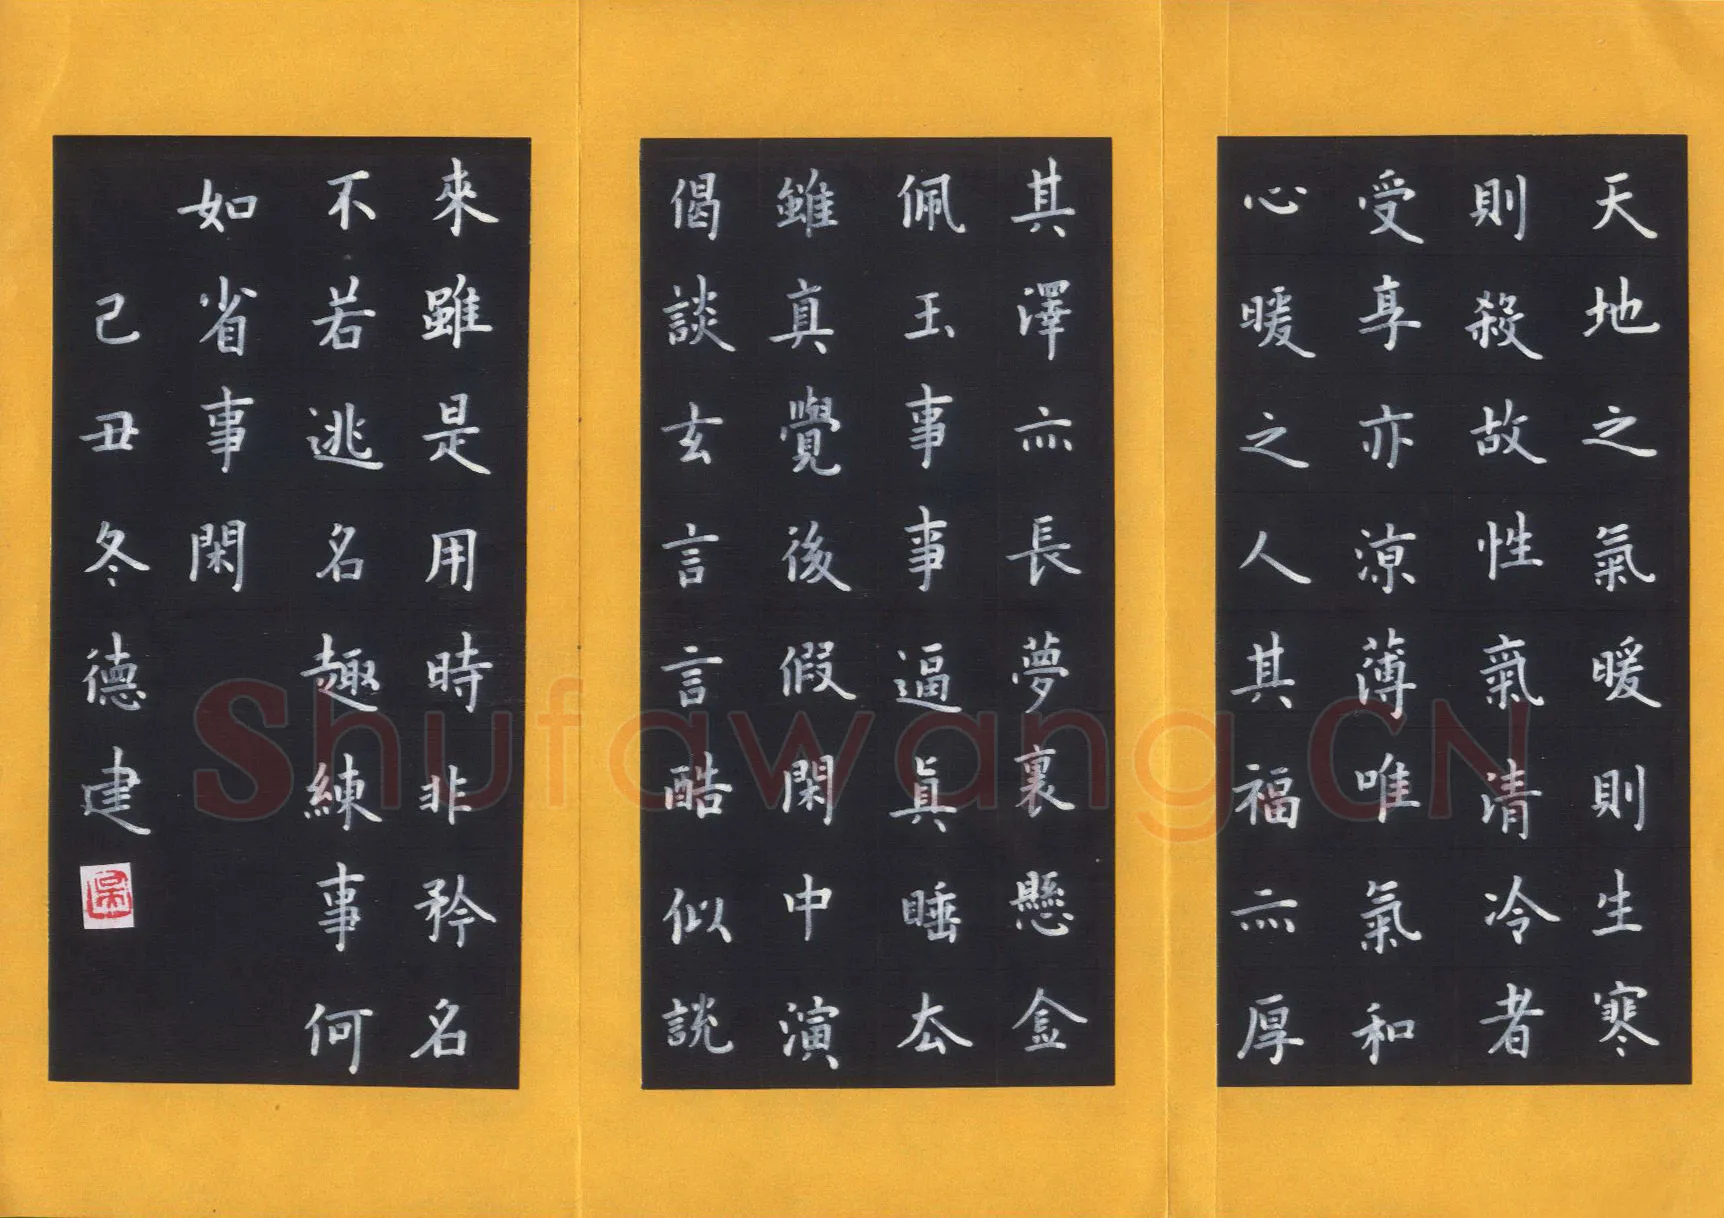 天地之氣暖則生寒
則殺故性氣清冷者
受享亦涼薄唯氣和
心暖之人其福亦厚
其澤亦長夢裏懸金
佩玉事事逼真睡去
雖真覺後假閑中演
偈談玄言言酷似說
來雖是用時非矜名
不若逃名趣練事何
如省事閑
己丑冬德建
Shufawang.CN